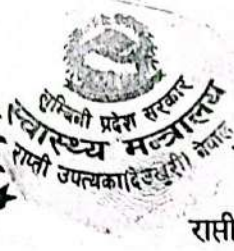 लुम्बिनी प्रदेश सरकार
स्वास्थ्य मन्त्रालय
राप्ती उपत्यका(देउखुरी) नेपाल
राप्ती